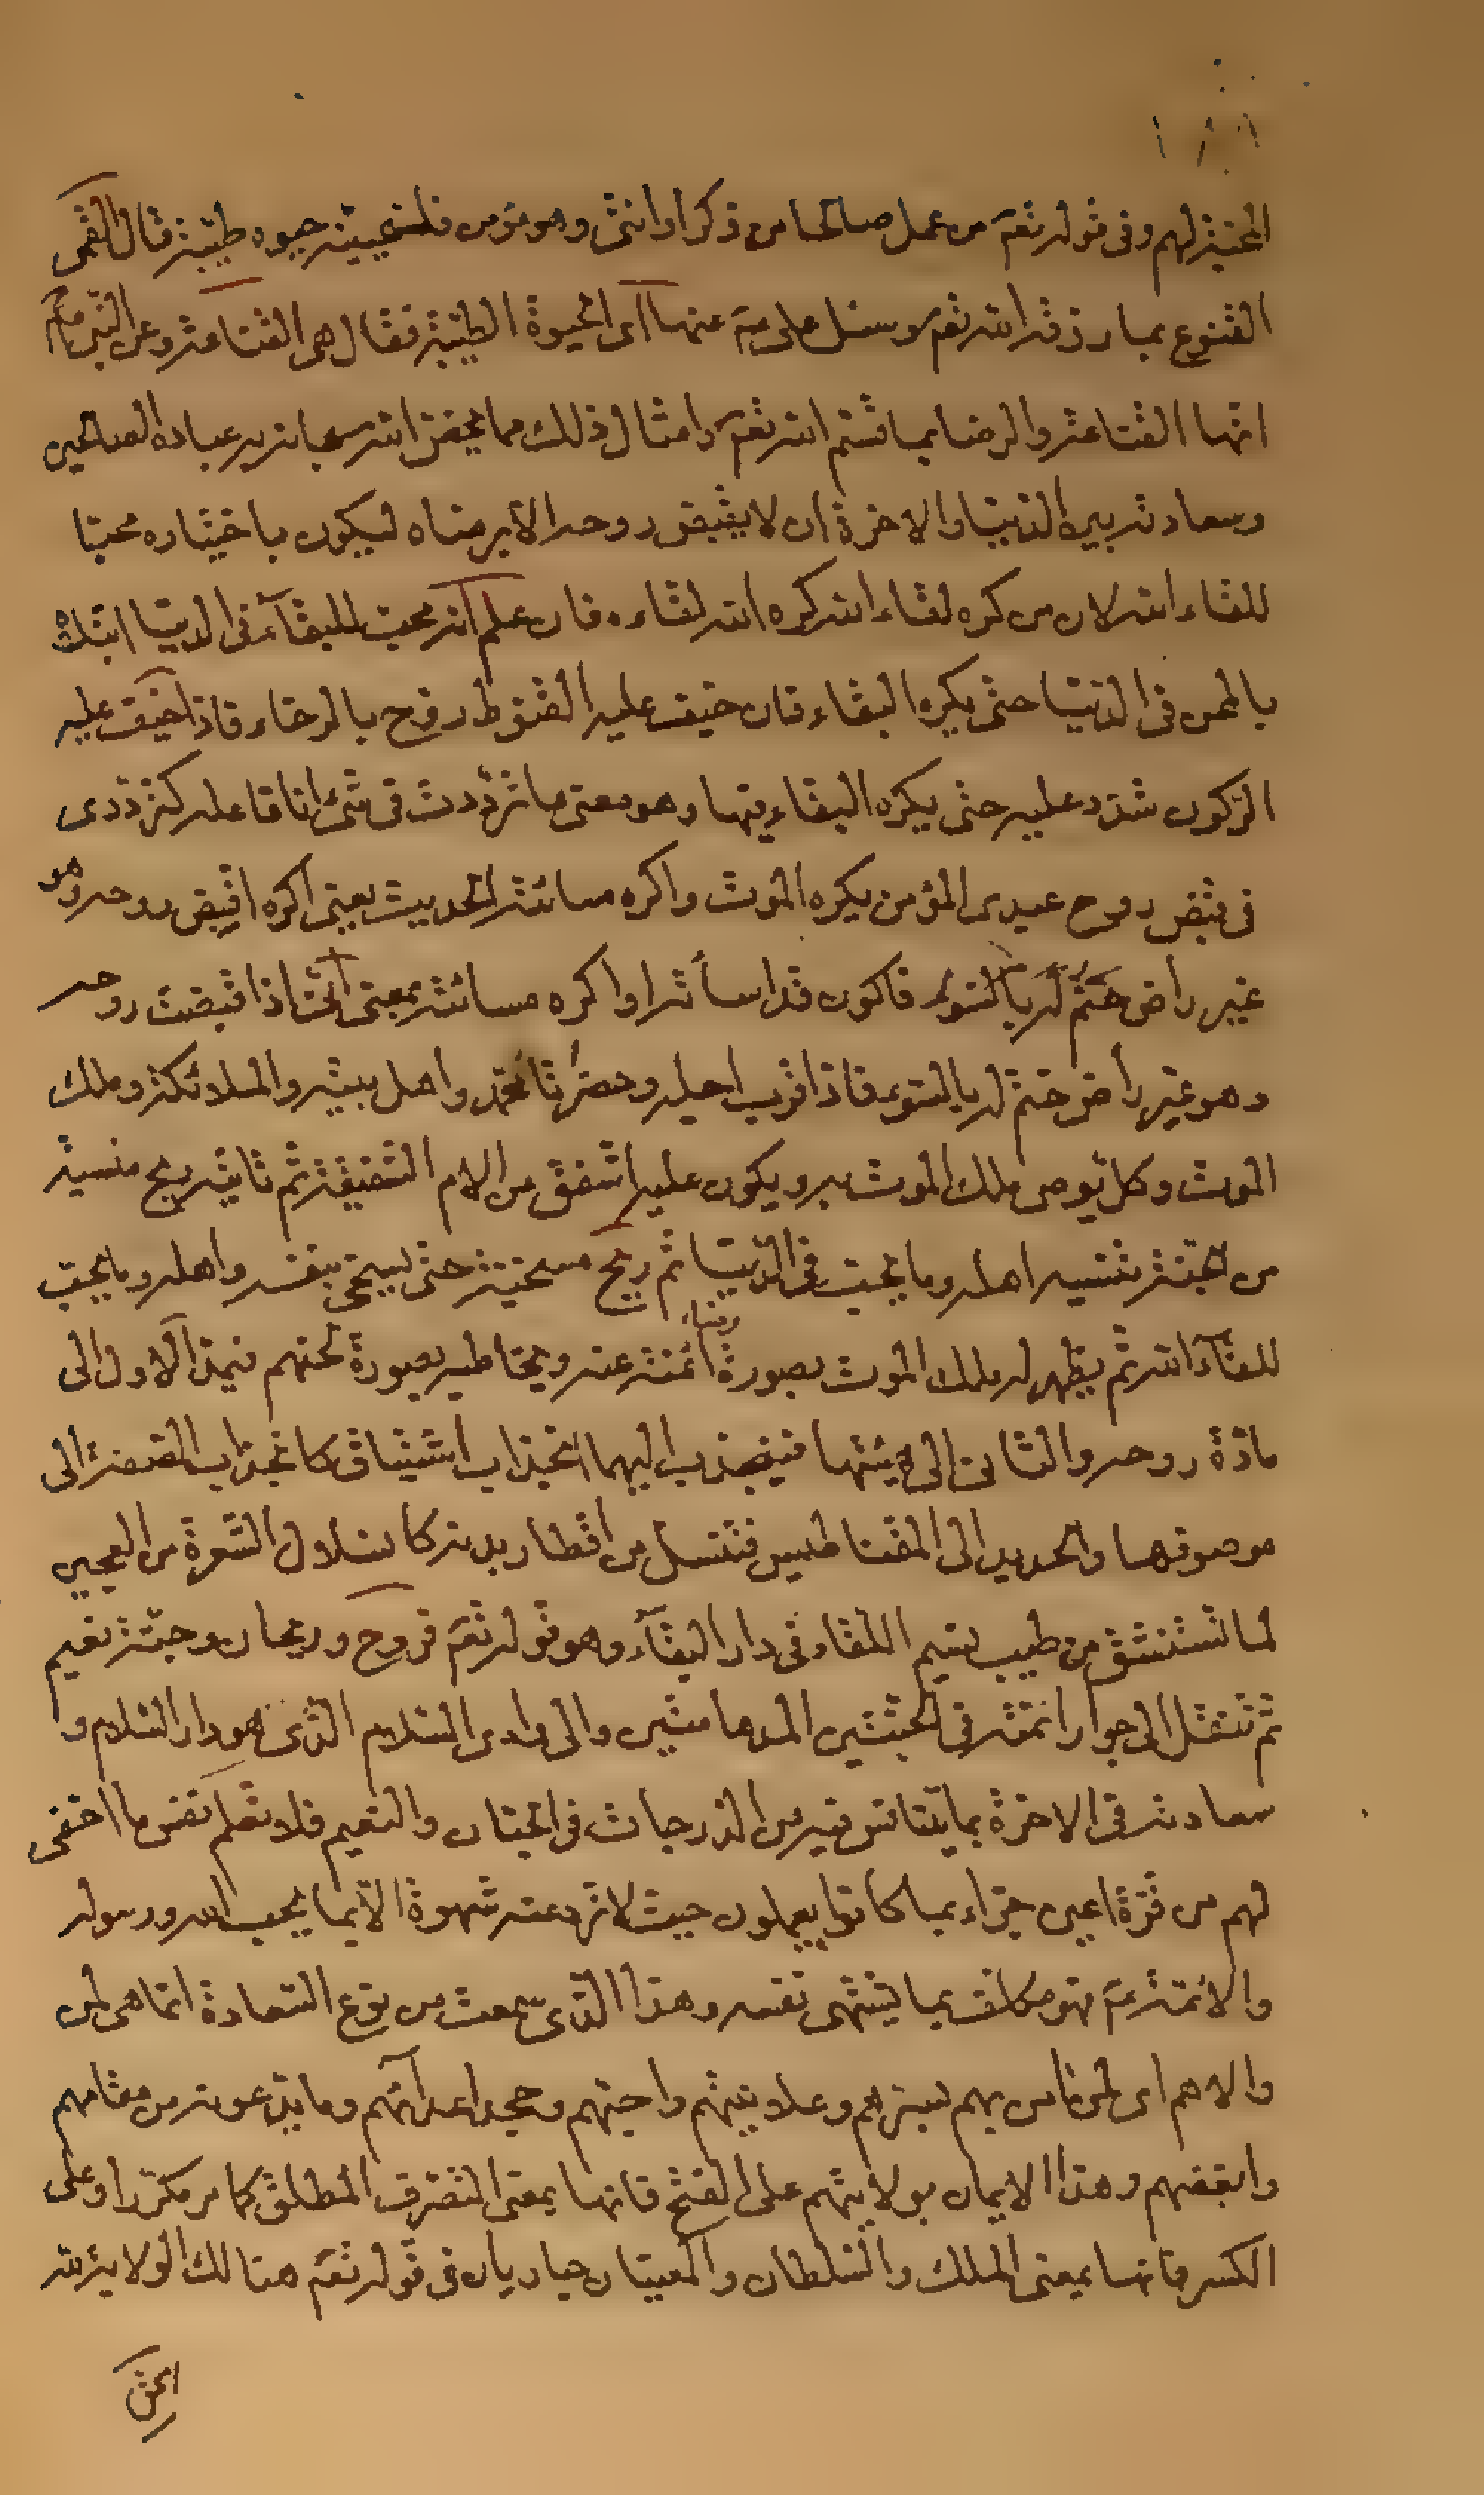 المحنة لهم وفى قوله تعم من عمل صالحا من ذكر او انثى وهو مؤمن فلنحيينه حيوه طيبة قال القمى
القنوع بما رزقه الله تعم وسئل على عم عنها اى الحيوة الطيبة فقال هى القناعة وعن النبى صلعم
انها القناعة والرضا بما قسم الله تعم وامثال ذلك مما يخص الله سبحانه به عباده الصالحين
وسعادته بين الدنيا والاخرة ان لا يقبض روحه الا برضاه ليكون باختياره محبا
للقاء الله لان من كره لقاء الله كره الله لقاءه فان علم انه محب للبقآء فى الدنيا ابتلاه
بالمحن فى الدنيا حتى يكره البقاء فان خيف عليه القنوط روح بالرخاء فاذا خيف عليه
الركون شدد عليه حتى يكره البقاء فيها وهو معنى ما ترددت فى شئ انا فاعله كترددى
فى قبض روح عبدى المؤمن يكره الموت واكره مسائته الحديث يعنى اكره اقبض روحه وهو
غير راض ختم له بالسوء فاكون قد اسأته او اكره مسائته بمعنى انى اذا قبضت روحه
وهو غير راض ختم له بالسوء فاذا قرب اجله وحضر اتا محمد واهل بيته والملائكة وملك
الموت وكل يوصى ملك الموت به ويكون عليه اشفق من الام الشفيقة ثم تاتيه ريح منسية
من الجنة تنسيه اهله وما يحب فى الدنيا ثم ريح مسخية حتى يسخى بنفسه واهله وما يحب
للقآء الله ثم يظهر له ملك الموت بصورة رضاء ائمته عنه ويخاطبه بصورة لحنهم فيجذ الاول الى
مادة روحه والثانى الى هيئتها فينجذب اليهما انجذاب اشتياق كانجذاب الصفة الى
موصوفها والحديد الى المقناطيس فتنسل من اقطار بدنه كانسلال الشعرة من العجين
لما تستنشق من طيب نسيم اللقاء فى دار البقآء وهو قوله تعم فروح وريحان وجنة نعيم
ثم تنتقل الى جوار ائمته فى الجنتين المدهامتين والى وادى السلام الذى هو دار السلام و
سعادته فى الاخرة بما يتنافس فيه من الدرجات فى الجنان والنعيم فلا تعلم نفس ما اخفى
لهم من قرة اعين جزاء بما كانوا يعملون حيث لا ترد عنه شهوة الا بما يحب الله ورسوله
والائمة عم فهو مكلف بما يشتهى نفسه وهذا الذى سمعت من نوع السعادة انما هى لمن
والاهم اى لمن امن بهم بسرهم وعلانيتهم واحبهم وجحد اعدآئهم وما يدعونه من مقامهم
وابغضهم وهذا الايمان بولايتهم على الفتح فانها بمعنى التصرف المطلق كما مر مكررا وعلى
الكسر فانها بمعنى الملك والسلطان والمعنيان جاريان فى قوله تعم هنالك الولاية لله
الحق